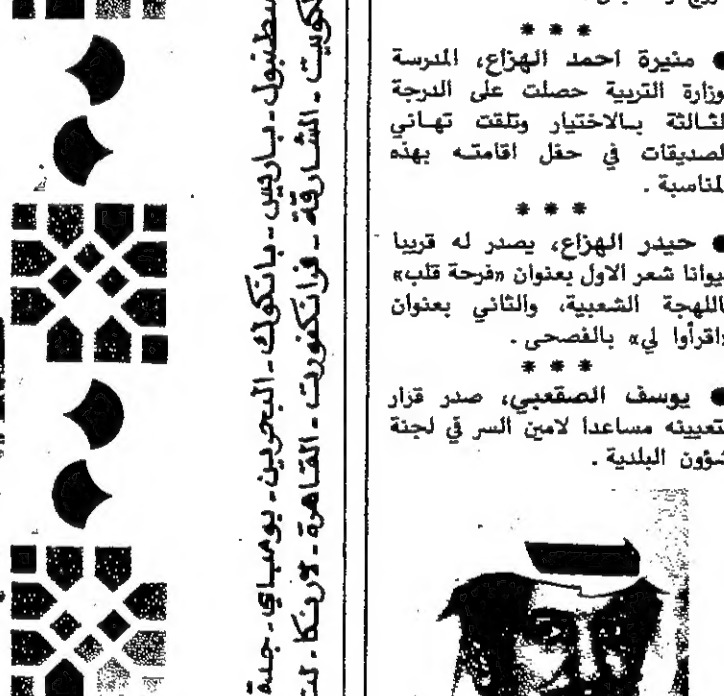 * * *
● منيرة احمد الهزاع، المدرسة
وزارة التربية حصلت على الدرجة
لثالثة بالاختيار وتلقت تهاني
لصديقات في حفل اقامته بهذه
لمناسبة .
* * *
● حيدر الهزاع، يصدر له قريبا
يوانا شعر الاول بعنوان «فرحة قلب»
باللهجة الشعبية، والثاني بعنوان
«اقرأوا لي» بالفصحى .
* * *
● يوسف الصقعبي، صدر قرار
تعيينه مساعدا لامين السر في لجنة
شؤون البلدية .
سطنبول - باريس - بانكوك - البحرين - بومباي - جدة
لكويت - الشارقة - فرانكفورت - القاهرة - لارنكا - لند